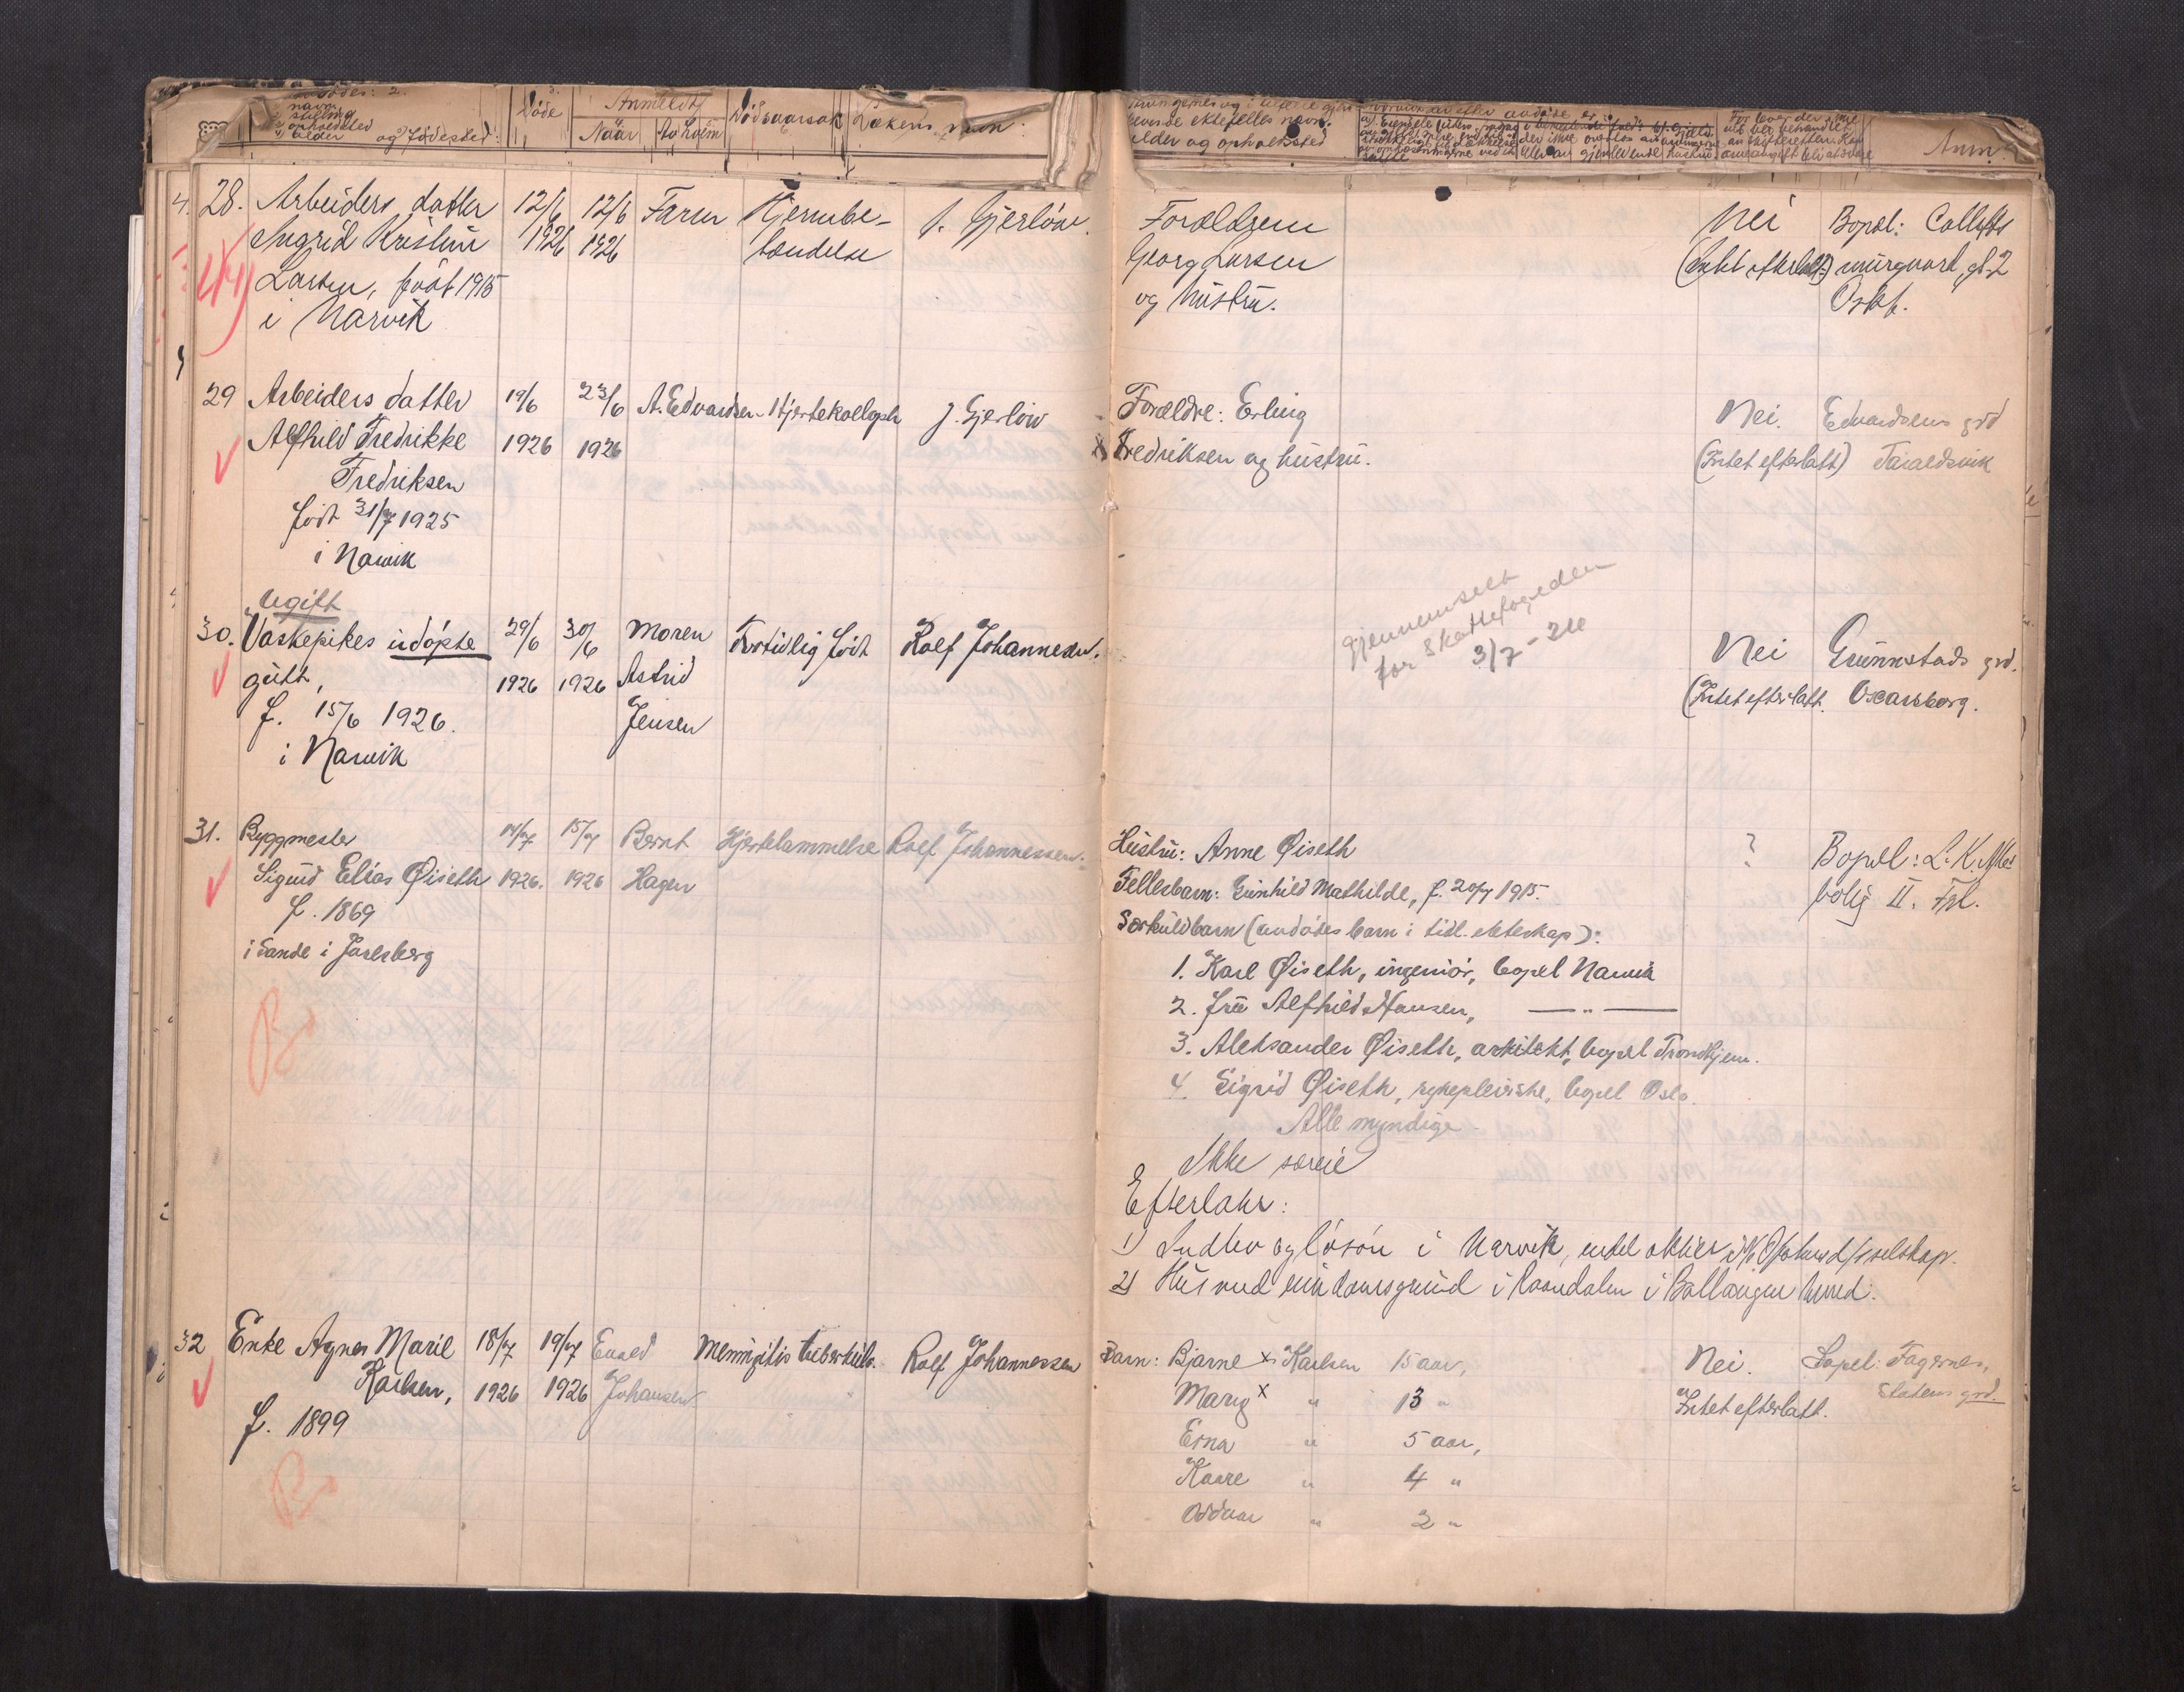 navn
stilling
opholdsted
alder og fødested:
Døde
Anmeldt
Naar
Av hvem
Dødsaarsak
Lækens navn:
levende ektefelles navn,
alder og opholdssted
Anm.
28. Arbeiders datter 12/6 12/6 Faren Hjernebe- J. Gjerløw.
Ingrid Kristine 1926 1926 tændelse
Larsen, født 1915
i Narvik
Forældrene
Georg Larsen
og hustru.
Nei
(Intet efterlatt)
Bopæl: Colletts
murgaard, gt. 2
Oskb.
29 Arbeiders datter 19/6 23/6 A. Edvardsen Hjertekollaps J. Gjerløw
Alfhild Fredrikke 1926 1926
Fredriksen
født 31/7 1925
i Narvik
Forældre: Erling
Fredriksen og hustru.
Nei.
(Intet efterlatt)
Edvardsens grd
Taraldsvik
Ugift
30. Vaskepikes udøpte 29/6 30/6 Moren Fortidlig født Rolf Johannessen.
gutt, 1926 1926 Astrid
f. 15/6 1926. Jensen
i Narvik
Gjennemset
for Skattefogeden
3/7-26
Nei
(Intet efterlatt.
Grunnstads grd.
Oscarsborg.
31. Byggmester 14/7 15/7 Bernt Hjertelammelse Rolf Johannessen.
Sigurd Elias Øiseth 1926. 1926 Hagen
f. 1869
i Sande i Jarlsberg
Hustru: Anne Øiseth
Fellesbarn: Gunhild Mathilde, f. 20/7 1915.
Særkuldbarn (avdødes barn i tidl. ekteskap):
1. Karl Øiseth, ingeniør, bopel Narvik
2. fru Alfhild Hansen, — " —
3. Aleksander Øiseth, arkitekt, bopel Trondhjem.
4. Sigrid Øiseth, sykepleierske, bopel Oslo.
Alle myndige.
Ikke særeie
Efterlater:
1) Indbo og løsøre i Narvik, endel aktier i
2) Hus med eiendomsgrund i i Ballangen herred.
?
Bopæl: L.K.
bolig II. Frl.
32 Enke Agnes Marie 18/7 19/7 Evald Meningitis tuberkul. Rolf Johannessen
Karlsen, 1926 1926 Johansen
f. 1899
Barn: Bjarne x Karlsen 15 aar,
Mary x " 13 "
Erna " 5 aar,
Kaare " 4 "
Oddvar " 2 "
Nei.
Intet efterlatt.
Bopel: Fagernes,
Statens grd.